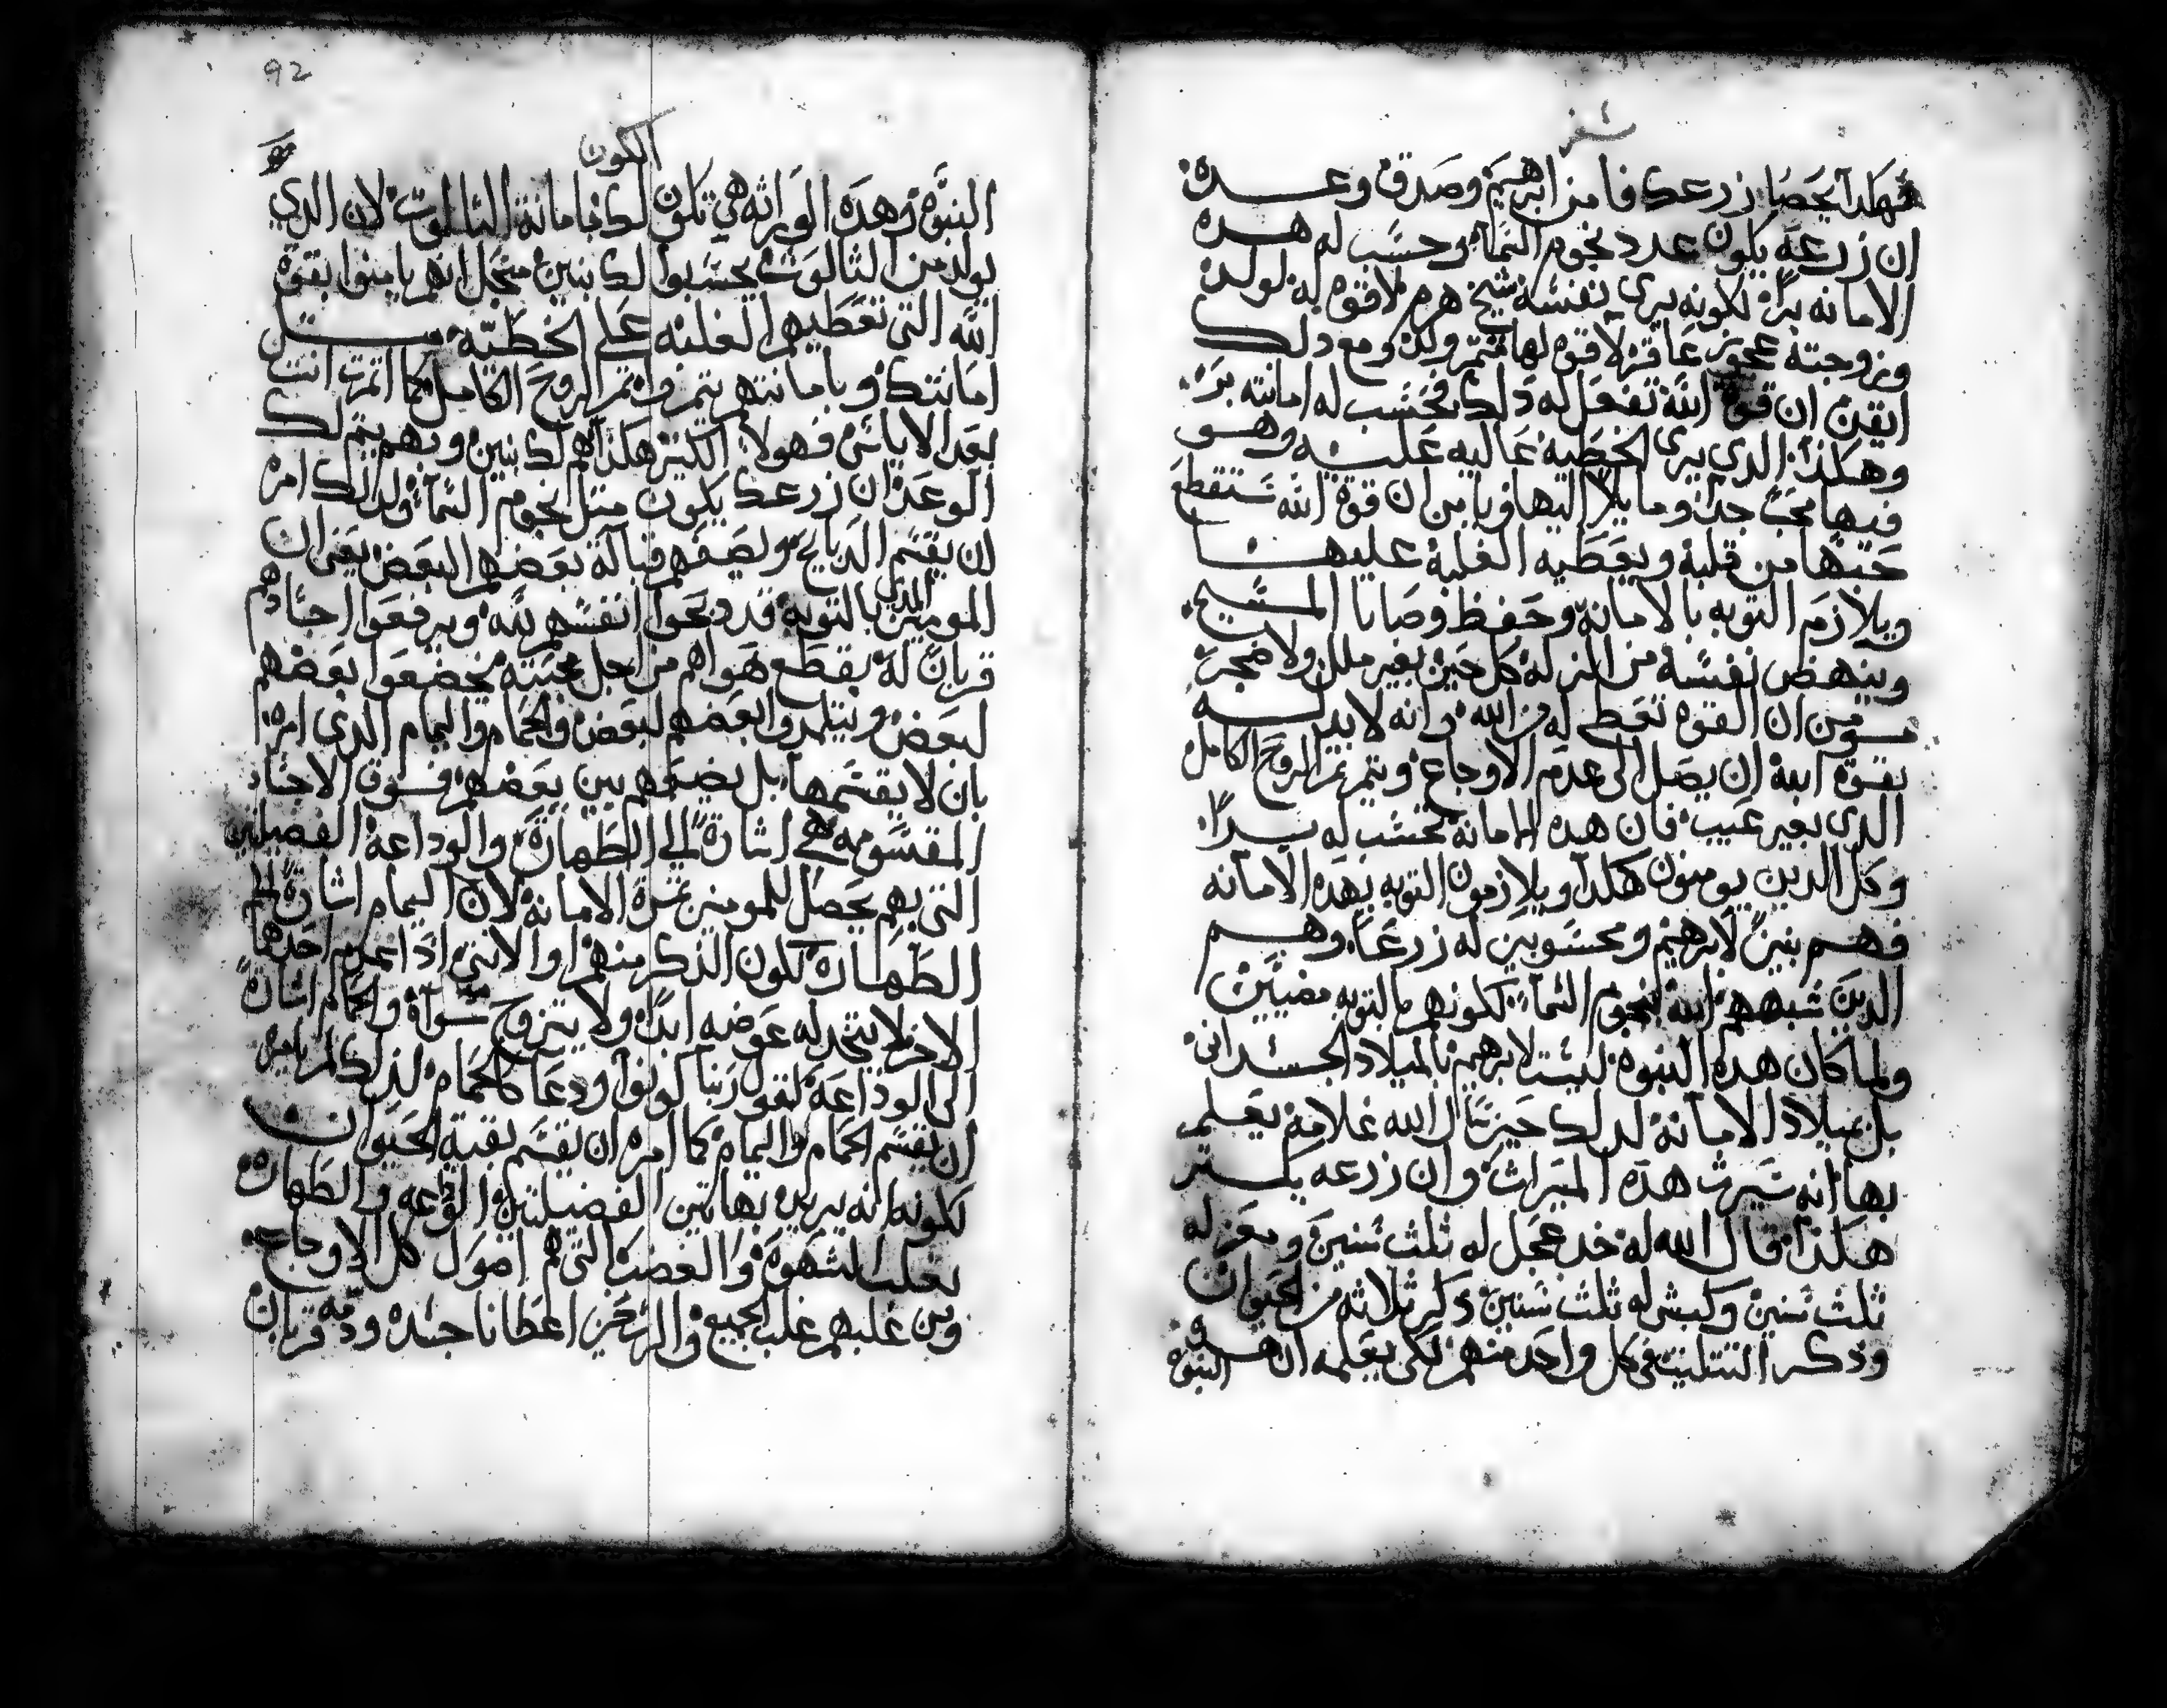 سفر
فهكدا يحصا زرعك فامن ابرهيم وصدق وعده
ان زرعه يكون عدد نجوم السماء وحسب له هده
الامانه برا لكونه يري نفسه شيخ هرم لا قوه له لولد
وزوجته عجوز عاقر لا قوه لها ولد ومع دلك
ايقن ان قوة الله تفعل له دلك فحسب له امانته بر
وهكذا الدي يري الخطيه غاليه عليه وهو
فيها محب جدا ومايلا اليها ويامن ان قوة الله ستقطع
حبها من قلبه ويعطيه الغلبة عليها
ويلازم التوبه بالامانه وحفظ وصايا المسيح
وينهض نفسه من المزله كل حين بغير ملل ولا ضجر
مومن ان القوه تعطي له من الله وانه لابد له
بقوة الله ان يصل الي عدم الاوجاع ويتم ثمر الروح الكامل
الدي بغير عيب فان هده الامانه تحسب له برا
وكل الدين يومنون هكدا ويلازمون التوبه بهده الامانه
فهم بنين لابرهيم ومحسوبين له زرعا وهم
الدين شبههم الله بنجوم السماء لكونهم بالتوبه مضيين
ولما كان هده النبوه ليست لابرهيم بالميلاد الجسداني
بل بميلاد الامانه لدلك حين سال الله علامة يعلم
بها انه سيرث هده الميراث وان زرعه يكتر
هكذا قال الله له خد عجل له ثلث سنين ومعز له
ثلث سنين وكبش له ثلث سنين دكر ثلاثه من الحيوان
ودكر التتليت في كل واحد منهم لكي يعلمه ان هده النبوه
92
الكون
النبوه وهده الوراثه هي تكون لك بامانة التالوت لان الدي
يولد من التالوت يحسبوا لك بنين منجل انهم يامنوا بقوة
الله التي تعطيهم الغلبه علي الخطيه متل
امانتك وبامانتهم يتمروا تمر الروح الكامل كما اتمرت انت
بعد الاياس فهولاء الكتير هكذا هم لك بنين وبهم يتم لك
الوعد ان زرعك يكون متل نجوم السماء ولدلك امره
ان يقسم الدبايح ويصفهم قبالة بعضهم البعض يعني ان
المومنين الدين بالتوبه قد دبحوا انفسهم لله ويرفعوا اجسادهم
قربان له بقطع هواهم من اجل محبته يخضعوا بعضهم
لبعض ويتلمدوا بعضهم لبعض والحمام واليمام الدي امره
بان لا يقسمها بل يضعهم بين بعضهم فوق الاجساد
المقسومه هي اشارة الي الطهارة والوداعة الفضيلتين
التي بهم يحصل للمومنين تمرة الامانه لان اليمام اشارة الي
الطهارة لكون الذكر منهم او الانتي اذا عدم احدها
الاخر لا يتخد له عوضه ابدا ولا يتزوج سواه والحمام اشارة
الي الوداعة لقول ربنا كونوا ودعا كالحمام لذلك لم يامره
ان يقسم الحمام واليمام كما امره ان يقسم بقية الحيوان
لكونه انه يريد بهاتين الفضيلتين الوداعه والطهارة
نغلب الشهوة والغضب التي هم اصول كل الاوجاع
ومن غلبهم غلب الجميع والرب حين اعطانا جسده ودمه قربان